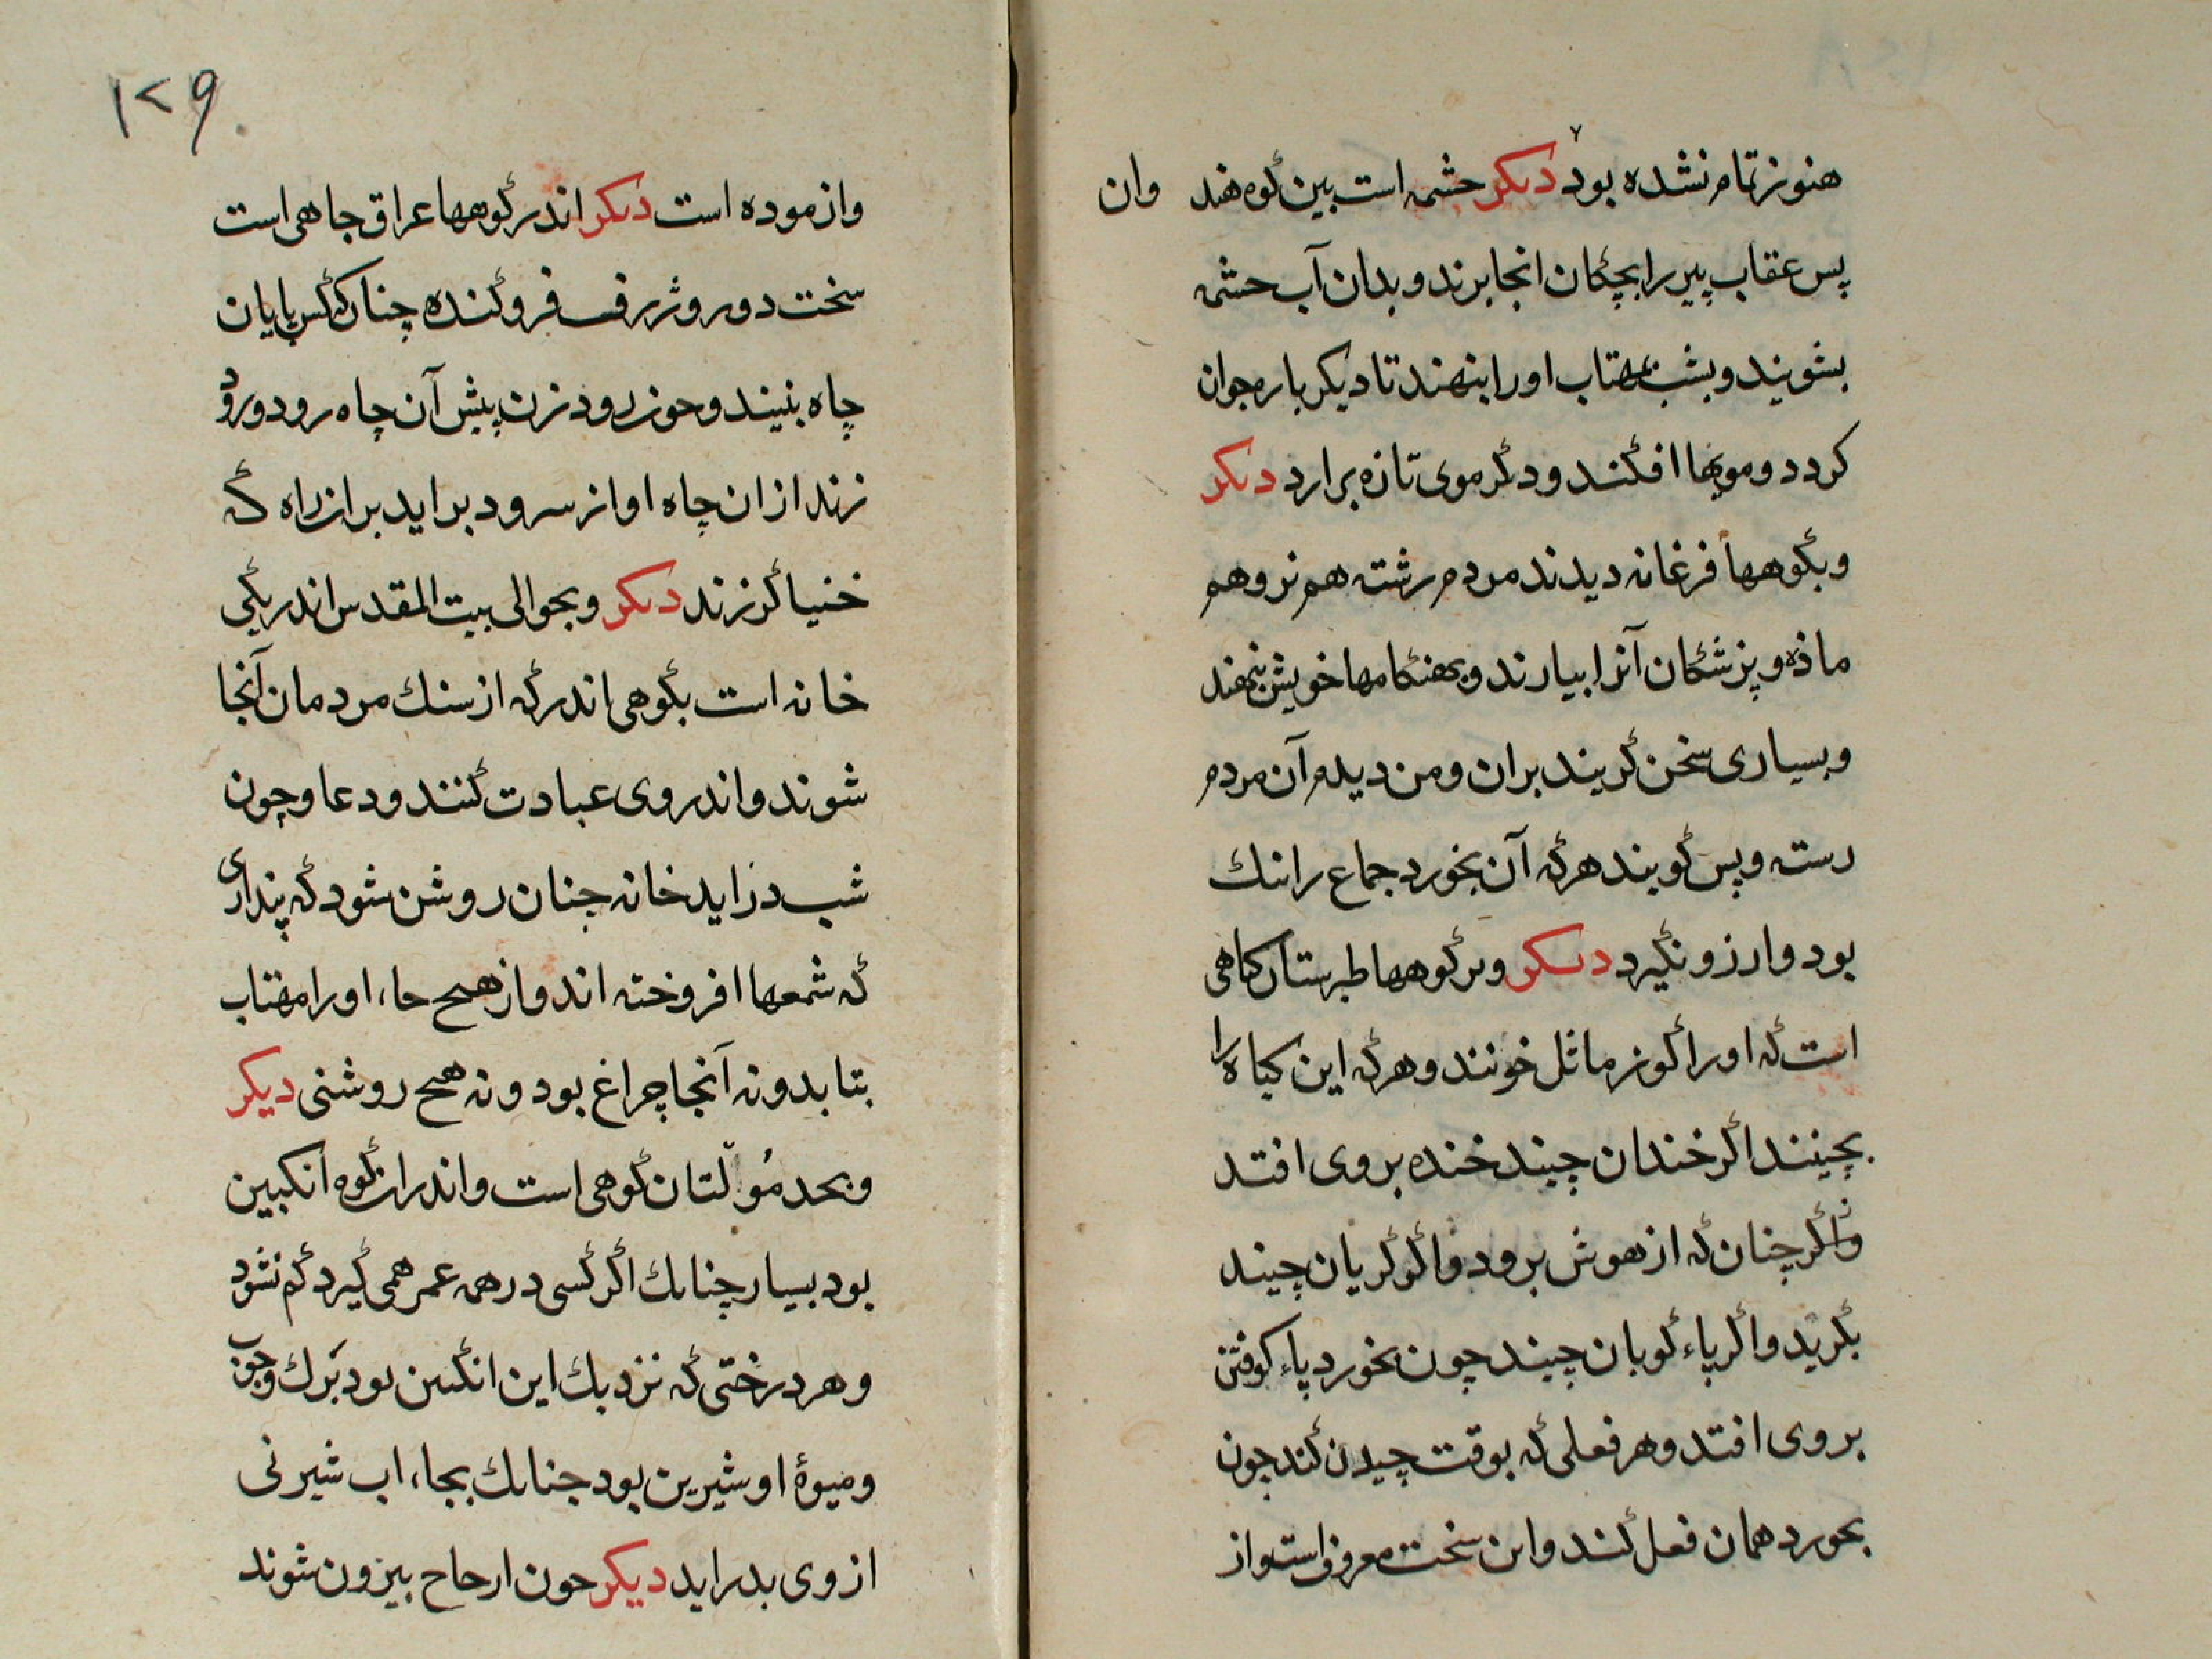 هنوز تمام نشده بود دیکر حشمه است بین کوه هند وان
پس عقاب پیر را بچکان انجا برند و بدان آب حشمه
بشویند و بشب بمهتاب او را بنهند تا دیکر باره جوان
کردد و مویها افکند و دکر موی تازه برارد دیکر
و بکوهها فرغانه دیدند مردم رشته هم نر و هم
ماذه و پزشکان آنرا بیارند و بهنکامها خویش بنهند
و بسیاری سخن کریند بران و من دیدم آن مردم
رسته و پس کویند هرکه آن بخورد جماع را ننك
بود و ارزو نکیرد دیکر وبر کوهها طبرستان کیاهی
است که او را کوز ماثل خونند و هرکه این کیاه را
بچینند اکر خندان چیند خنده بر وی افتد
واکر چنان که از هوش برود واکر کریان چیند
بکرید واکر پاء کوبان چیند چون بخورد پاء کوفتن
بر وی افتد و هر فعلی که بوقت چیدن کند چون
بخورد همان فعل کند و این سخت معروف است و از
۱۲۹
وازموده است دیکر اندر کوهها عراق جاهی است
سخت دور و ژرف فروکنده چنان که کس پایان
چاه نبیند و حون رود زن پیش آن چاه رود و رود
زند از ان چاه اواز سرود براید بران راه که
خنیاکر زند دیکر و بحوالی بیت المقدس اندر یکی
خانه است بکوهی اندر که از سنك مردمان آنجا
شوند و اندر وی عبادت کنند و دعا و چون
شب دراید خانه چنان روشن شود که پنداری
که شمعها افروخته اند و از هیح حاء او را مهتاب
بتابد و نه آنجا چراغ بود و نه هیح روشنی دیکر
و بحد مُولّتان کوهی است و اندران کوه انکبین
بود بسیار چنانك اکر کسی در همه عمر همی کیرد کم نشود
و هر درختی که نزدیك این انکبین بود برك و چوب
و میوهٔ او شیرین بود جنانك بجاء اب شیرنی
از وی بدراید دیکر حون ارحاح بیرون شوند